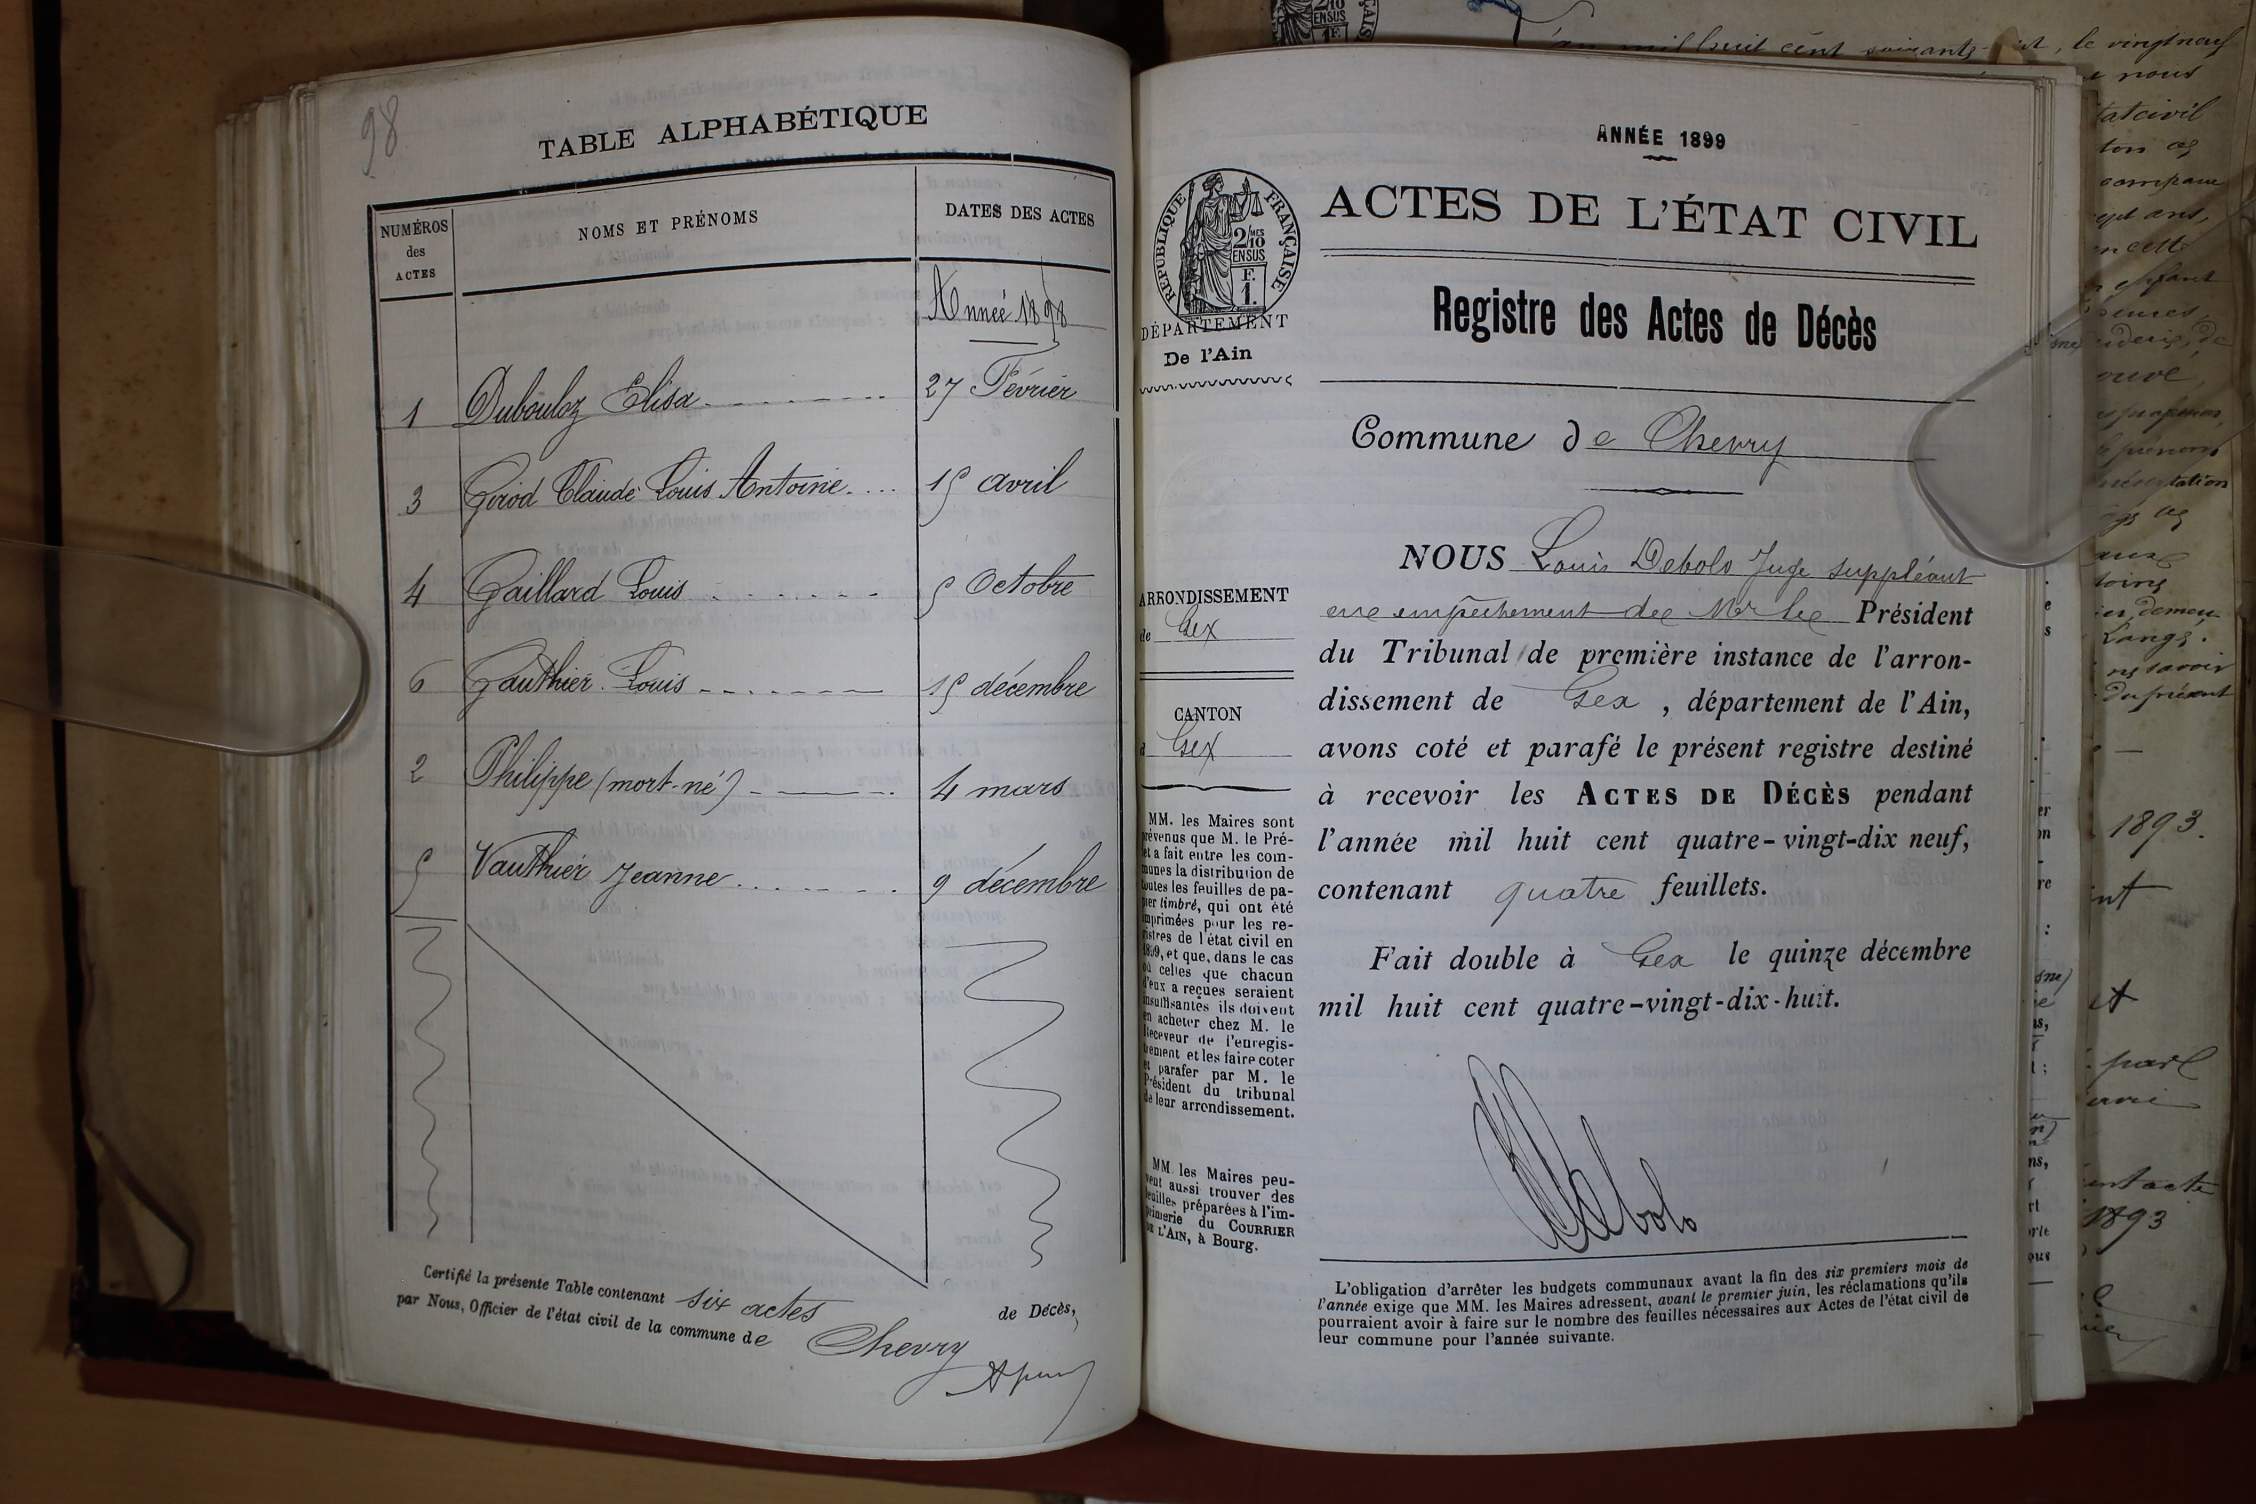 98
TABLE ALPHABÉTIQUE
NUMÉROS des ACTES
NOMS ET PRÉNOMS
DATES DES ACTES
Année 1898
1 Dubouloz Elisa 27 Février
3 Girod Claude Louis Antoine 15 avril
4 Gaillard Louis 5 Octobre
6 Gauthier Louis 15 décembre
2 Philippe (mort-né) 4 mars
5 Vauthier Jeanne 9 décembre
Certifié la présente Table contenant six actes de Décès,
par Nous, Officier de l'état civil de la commune de Chevry
ANNÉE 1899
RÉPUBLIQUE FRANÇAISE
2/10 MES
EN SUS
F.
1.
DÉPARTEMENT
De l'Ain
ARRONDISSEMENT
de Gex
CANTON
d Gex
MM. les Maires sont
prévenus que M. le Pré-
fet a fait entre les com-
munes la distribution de
toutes les feuilles de pa-
pier timbré, qui ont été
imprimées pour les re-
gistres de l'état civil en
1899, et que, dans le cas
où celles que chacun
d'eux a reçues seraient
insuffisantes ils doivent
en acheter chez M. le
Receveur de l'enregis-
trement et les faire coter
et parafer par M. le
Président du tribunal
de leur arrondissement.
MM. les Maires peu-
vent aussi trouver des
feuilles préparées à l'im-
primerie du COURRIER
DE L'AIN, à Bourg.
ACTES DE L'ÉTAT CIVIL
Registre des Actes de Décès
Commune de Chevry
NOUS Louis Debolo Juge suppléant
en empêchement de Mr le Président
du Tribunal de première instance de l'arron-
dissement de Gex, département de l'Ain,
avons coté et parafé le présent registre destiné
à recevoir les ACTES DE DÉCÈS pendant
l'année mil huit cent quatre-vingt-dix neuf,
contenant quatre feuillets.
Fait double à Gex le quinze décembre
mil huit cent quatre-vingt-dix-huit.
Debolo
L'obligation d'arrêter les budgets communaux avant la fin des six premiers mois de
l'année exige que MM. les Maires adressent, avant le premier juin, les réclamations qu'ils
pourraient avoir à faire sur le nombre des feuilles nécessaires aux Actes de l'état civil de
leur commune pour l'année suivante.
le vingtneuf
nous
1893.
1893